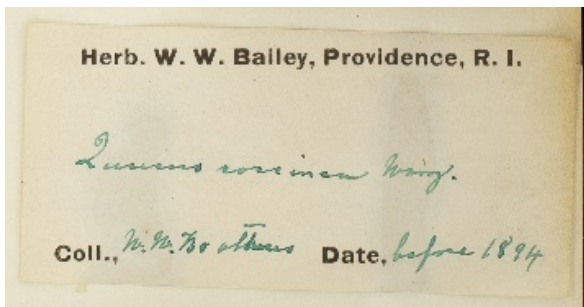 Herb. W. W. Bailey, Providence, R. I.
Quercus coccinea Wang.
Coll., W. W. B. & others Date, before 1894